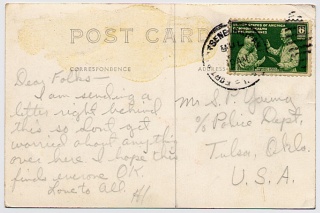 POST CARD
CORRESPONDENCE
ADDRESS
Dear Folks—
I am sending a
letter right behind
this so dont get
worried about anything
over here I hope this
finds everone O.K.
Love to All.
Mr S. P. Young
c/o Police Dept,
Tulsa, Okla.
U. S. A.
UNITED STATES OF AMERICA